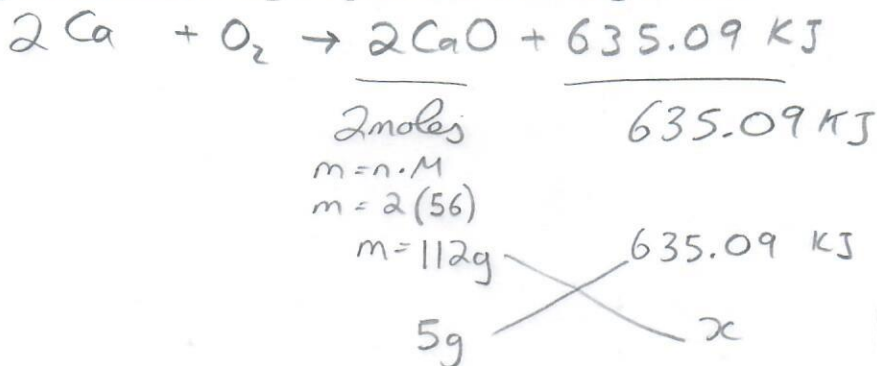 2 Ca + O₂ → 2CaO + 635.09 KJ
2moles 635.09 KJ
m=n.M
m=2(56)
m=112g 635.09 KJ
5g x